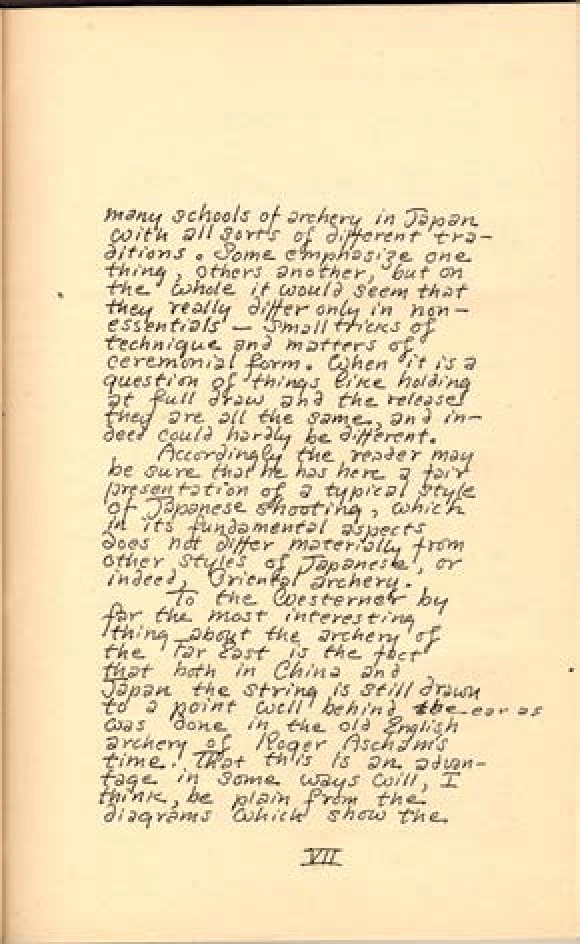 many schools of archery in Japan
with all sorts of different tra-
ditions. Some emphasize one
thing, others another, but on
the whole it would seem that
they really differ only in non-
essentials — small tricks of
technique and matters of
ceremonial form. When it is a
question of things like holding
at full draw and the release
they are all the same, and in-
deed could hardly be different.
Accordingly the reader may
be sure that he has here a fair
presentation of a typical style
of Japanese shooting, which
in its fundamental aspects
does not differ materially from
other styles of Japanese, or
indeed, Oriental archery.
To the Westerner by
far the most interesting
thing about the archery of
the Far East is the fact
that both in China and
Japan the string is still drawn
to a point well behind the ear as
was done in the old English
archery of Roger Ascham's
time. That this is an advan-
tage in some ways will, I
think, be plain from the
diagrams which show the
VII